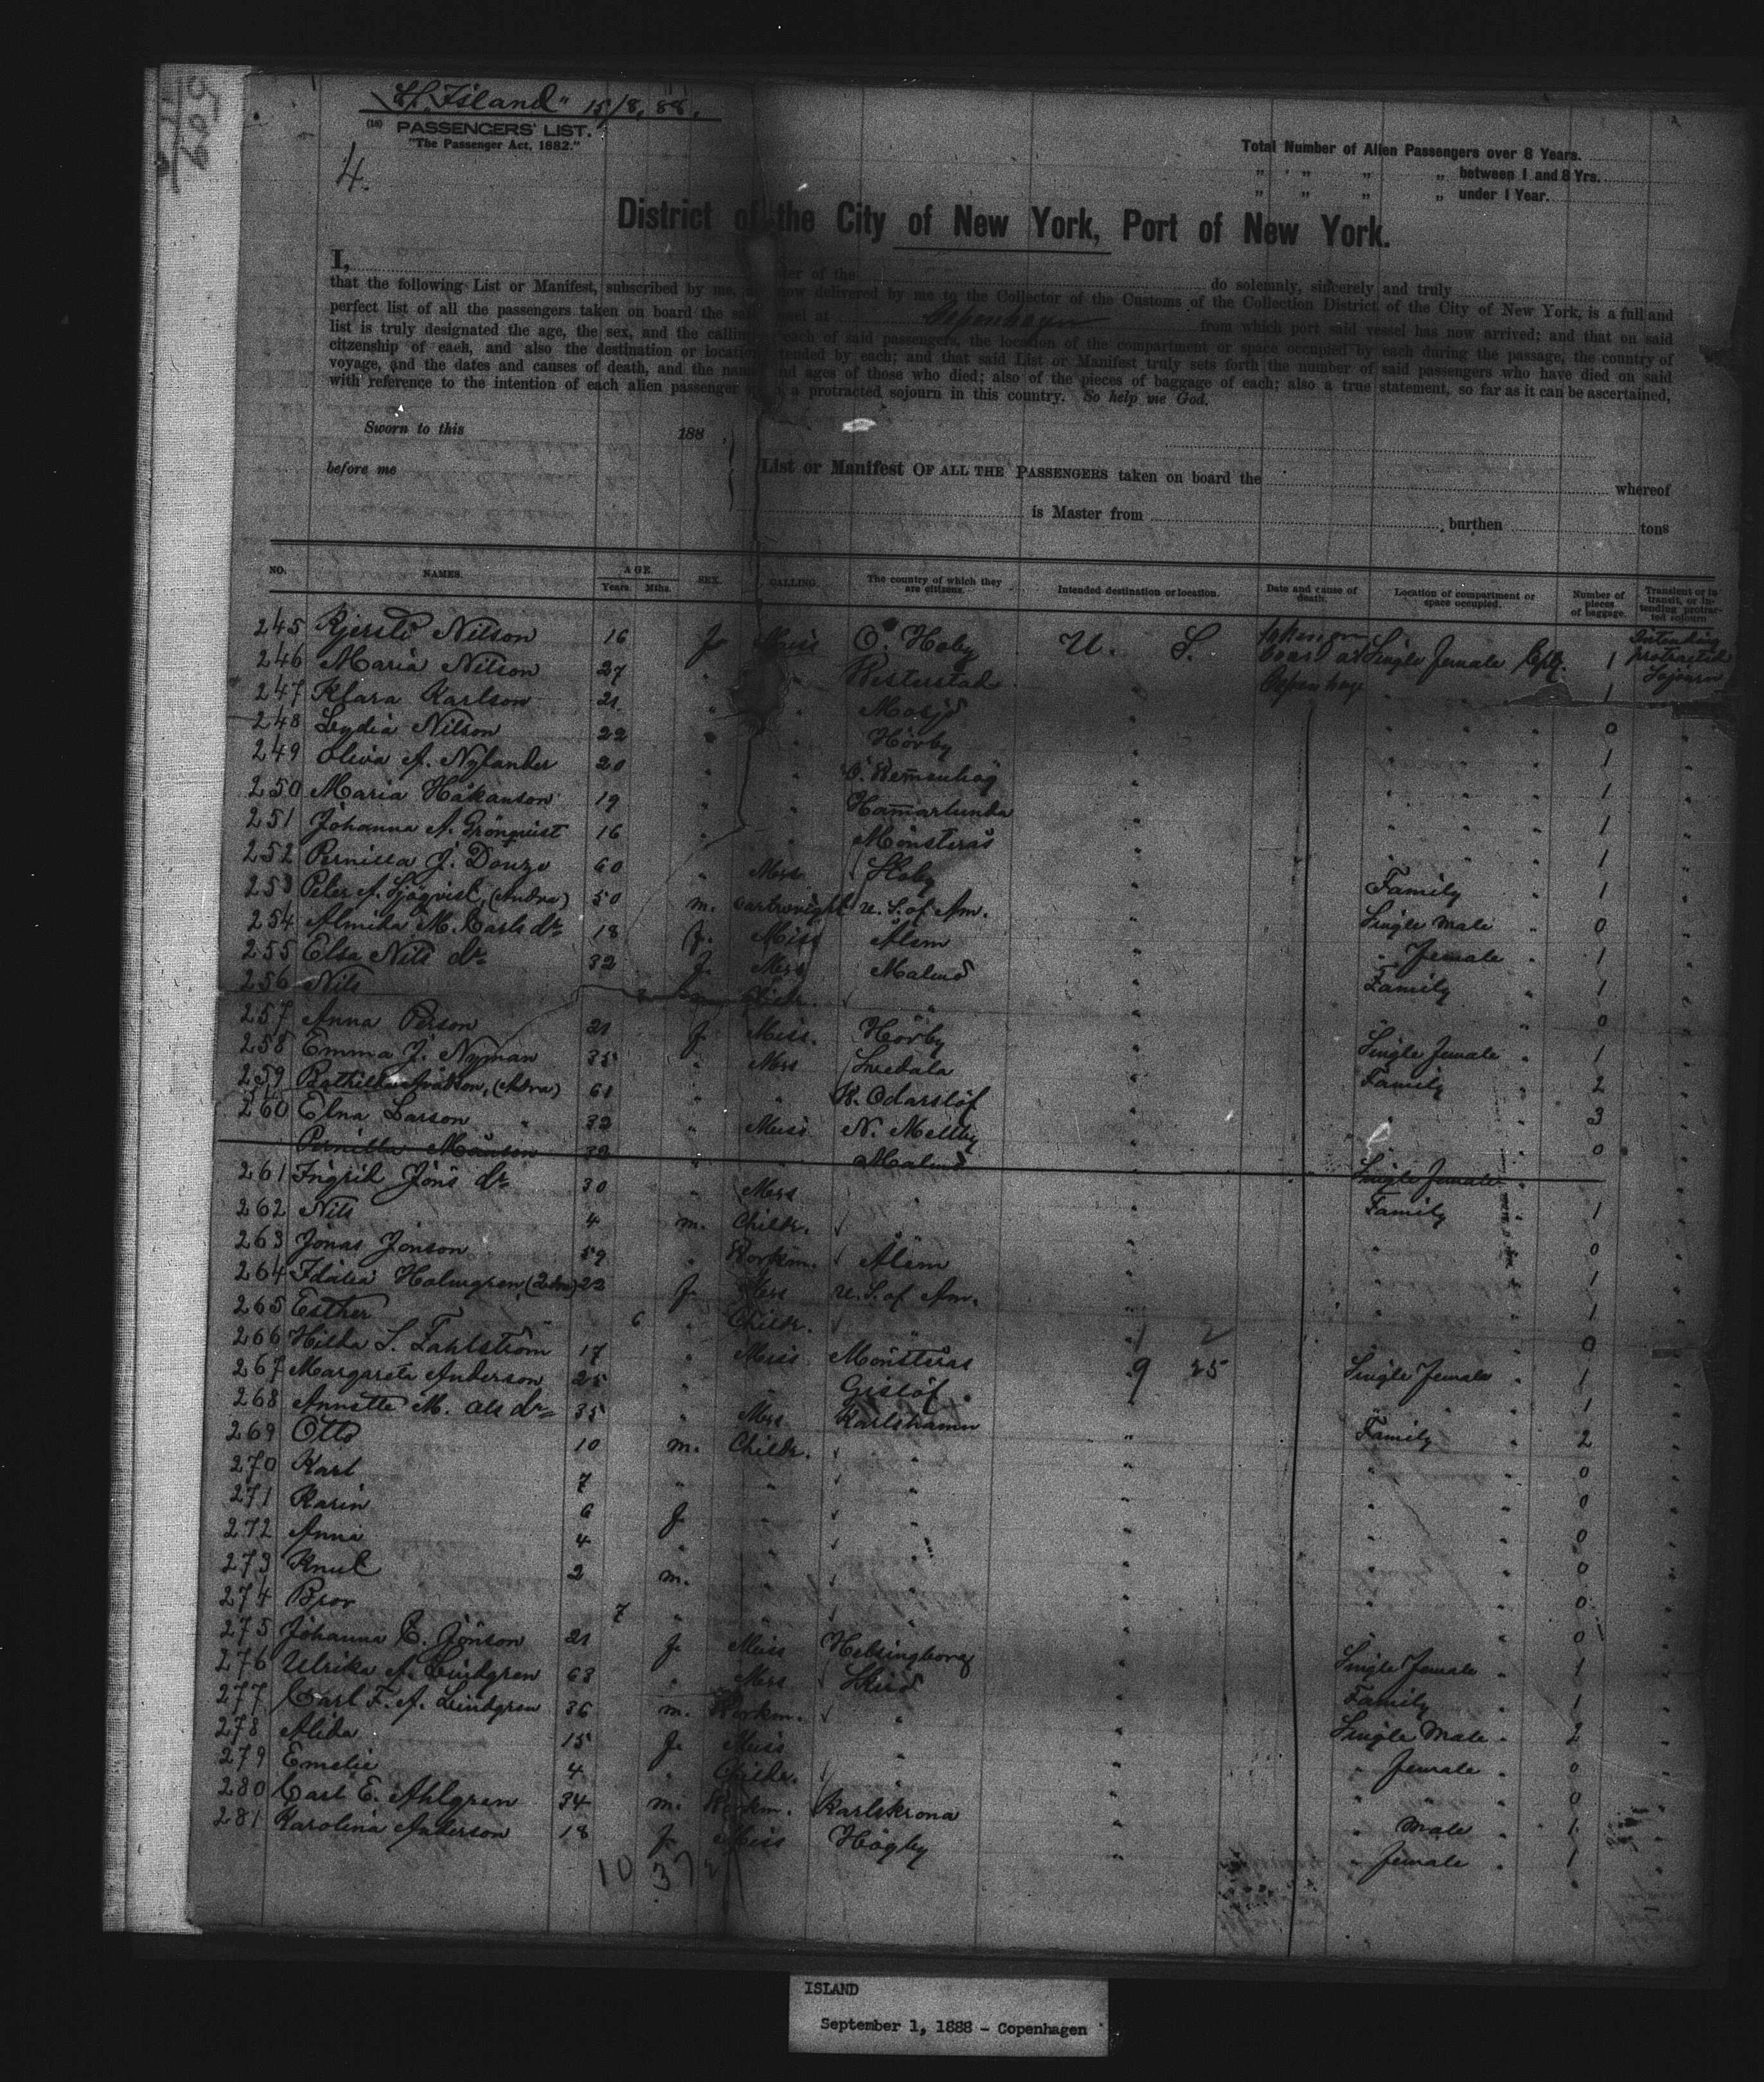 "S/S. Island" 15/8, 88.
(18) PASSENGERS' LIST.
"The Passenger Act, 1882."
4.
Total Number of Alien Passengers over 8 Years.
" " " " between 1 and 8 Yrs.
" " " " under 1 Year.
District of the City of New York, Port of New York.
I, of the do solemnly, sincerely and truly
that the following List or Manifest, subscribed by me, now delivered by me to the Collector of the Customs of the Collection District of the City of New York, is a full and
perfect list of all the passengers taken on board the at Copenhagen from which port said vessel has now arrived; and that on said
list is truly designated the age, the sex, and the calling each of said passengers, the location of the compartment or space occupied by each during the passage, the country of
citzenship of each, and also the destination or location tended by each; and that said List or Manifest truly sets forth the number of said passengers who have died on said
voyage, and the dates and causes of death, and the and ages of those who died; also of the pieces of baggage of each; also a true statement, so far as it can be ascertained,
with reference to the intention of each alien passenger a protracted sojourn in this country. So help me God.
Sworn to this 188 ,
before me
List or Manifest OF ALL THE PASSENGERS taken on board the whereof
is Master from , burthen tons
NO. NAMES. AGE. Years. Mths. SEX. CALLING. The country of which they are citizens. Intended destination or location. Date and cause of death. Location of compartment or space occupied. Number of pieces of baggage. Transient or in transit, or intending protracted sojourn
245 Kjersti Nilson 16 f Miss O. Hoby U. S. taken on board at Copenhage Single female 1 Intending protracted Sojourn
246 Maria Nilson 27 " " Westerstad " " 1 "
247 Klara Karlson 21 " " " " 0 "
248 Lydia Nilson 22 " " Hörby " " 1 "
249 Oliva A. Nylander 20 " " " " 1 "
250 Maria Håkanson 19 " " Hamarlunda " " 1 "
251 Johanna A. Grönquist 16 " " Mönsterås " " 1 "
252 Pernilla J. 60 " Mrs Hoby " Family 1 "
253 Peter A. Sjöqvist, (Andra) 50 m. cartwright U. S. of Am. " Single male 0 "
254 M. Carls dr 18 f. Miss Ålem " " female 1 "
255 Elsa Nils dr 32 f. Mrs Malmö " Family 1 "
256 Nils Childr. " " " 0 "
257 Anna Person 21 f Miss. Hörby " Single female 1 "
258 Emma J. Nyman 35 " Mrs Svedala " Family 2 "
259 (Andra) 61 " " " " 3 "
260 Elna Larson 32 " Miss N. Mellby " " 0 "
Pernilla Månson 32 " " Malmö " Single female "
261 Ingrid Jöns dr 30 " Mrs " " Family 1 "
262 Nils 4 m. Childr. " " " 0 "
263 Jonas Jonson 59 " Workm. Ålem " " 1 "
264 Holmgren 22 f. Mrs U. S. of Am. " " 1 "
265 Esther " 6 " Childr. " " " 0 "
266 Hilda S. Fahlström 17 " Miss Mönsterås " Single female 1 "
267 Margareta Anderson 25 " " Gislöf " 9 25 " 1 "
268 Annette M. Ols dr 35 " Mrs Karlshamn " Family 2 "
269 Otto 10 m. Childr. " " " 0 "
270 Karl 7 " " " " " 0 "
271 Karin 6 f. " " " " 0 "
272 Anna 4 " " " " " 0 "
273 Knut 2 m. " " " " 0 "
274 Bror 7 " " " " " 0 "
275 Johanna C. Jönson 21 f. Miss Helsingborg " Single female 1 "
276 Ulrika A. Lindgren 63 " Mrs " Family 1 "
277 Carl F. A. Lindgren 36 m. Workm. " " Single Male 2 "
278 Alida 15 f. Miss " " " female 0 "
279 Emelie 4 " Childr. " " " " 0 "
280 Carl E. Ahlgren 34 m. Workm. Karlskrona " " male 1 "
281 Karolina Anderson 18 f Miss Högby " " female 1 "
10 37
ISLAND
September 1, 1888 - Copenhagen